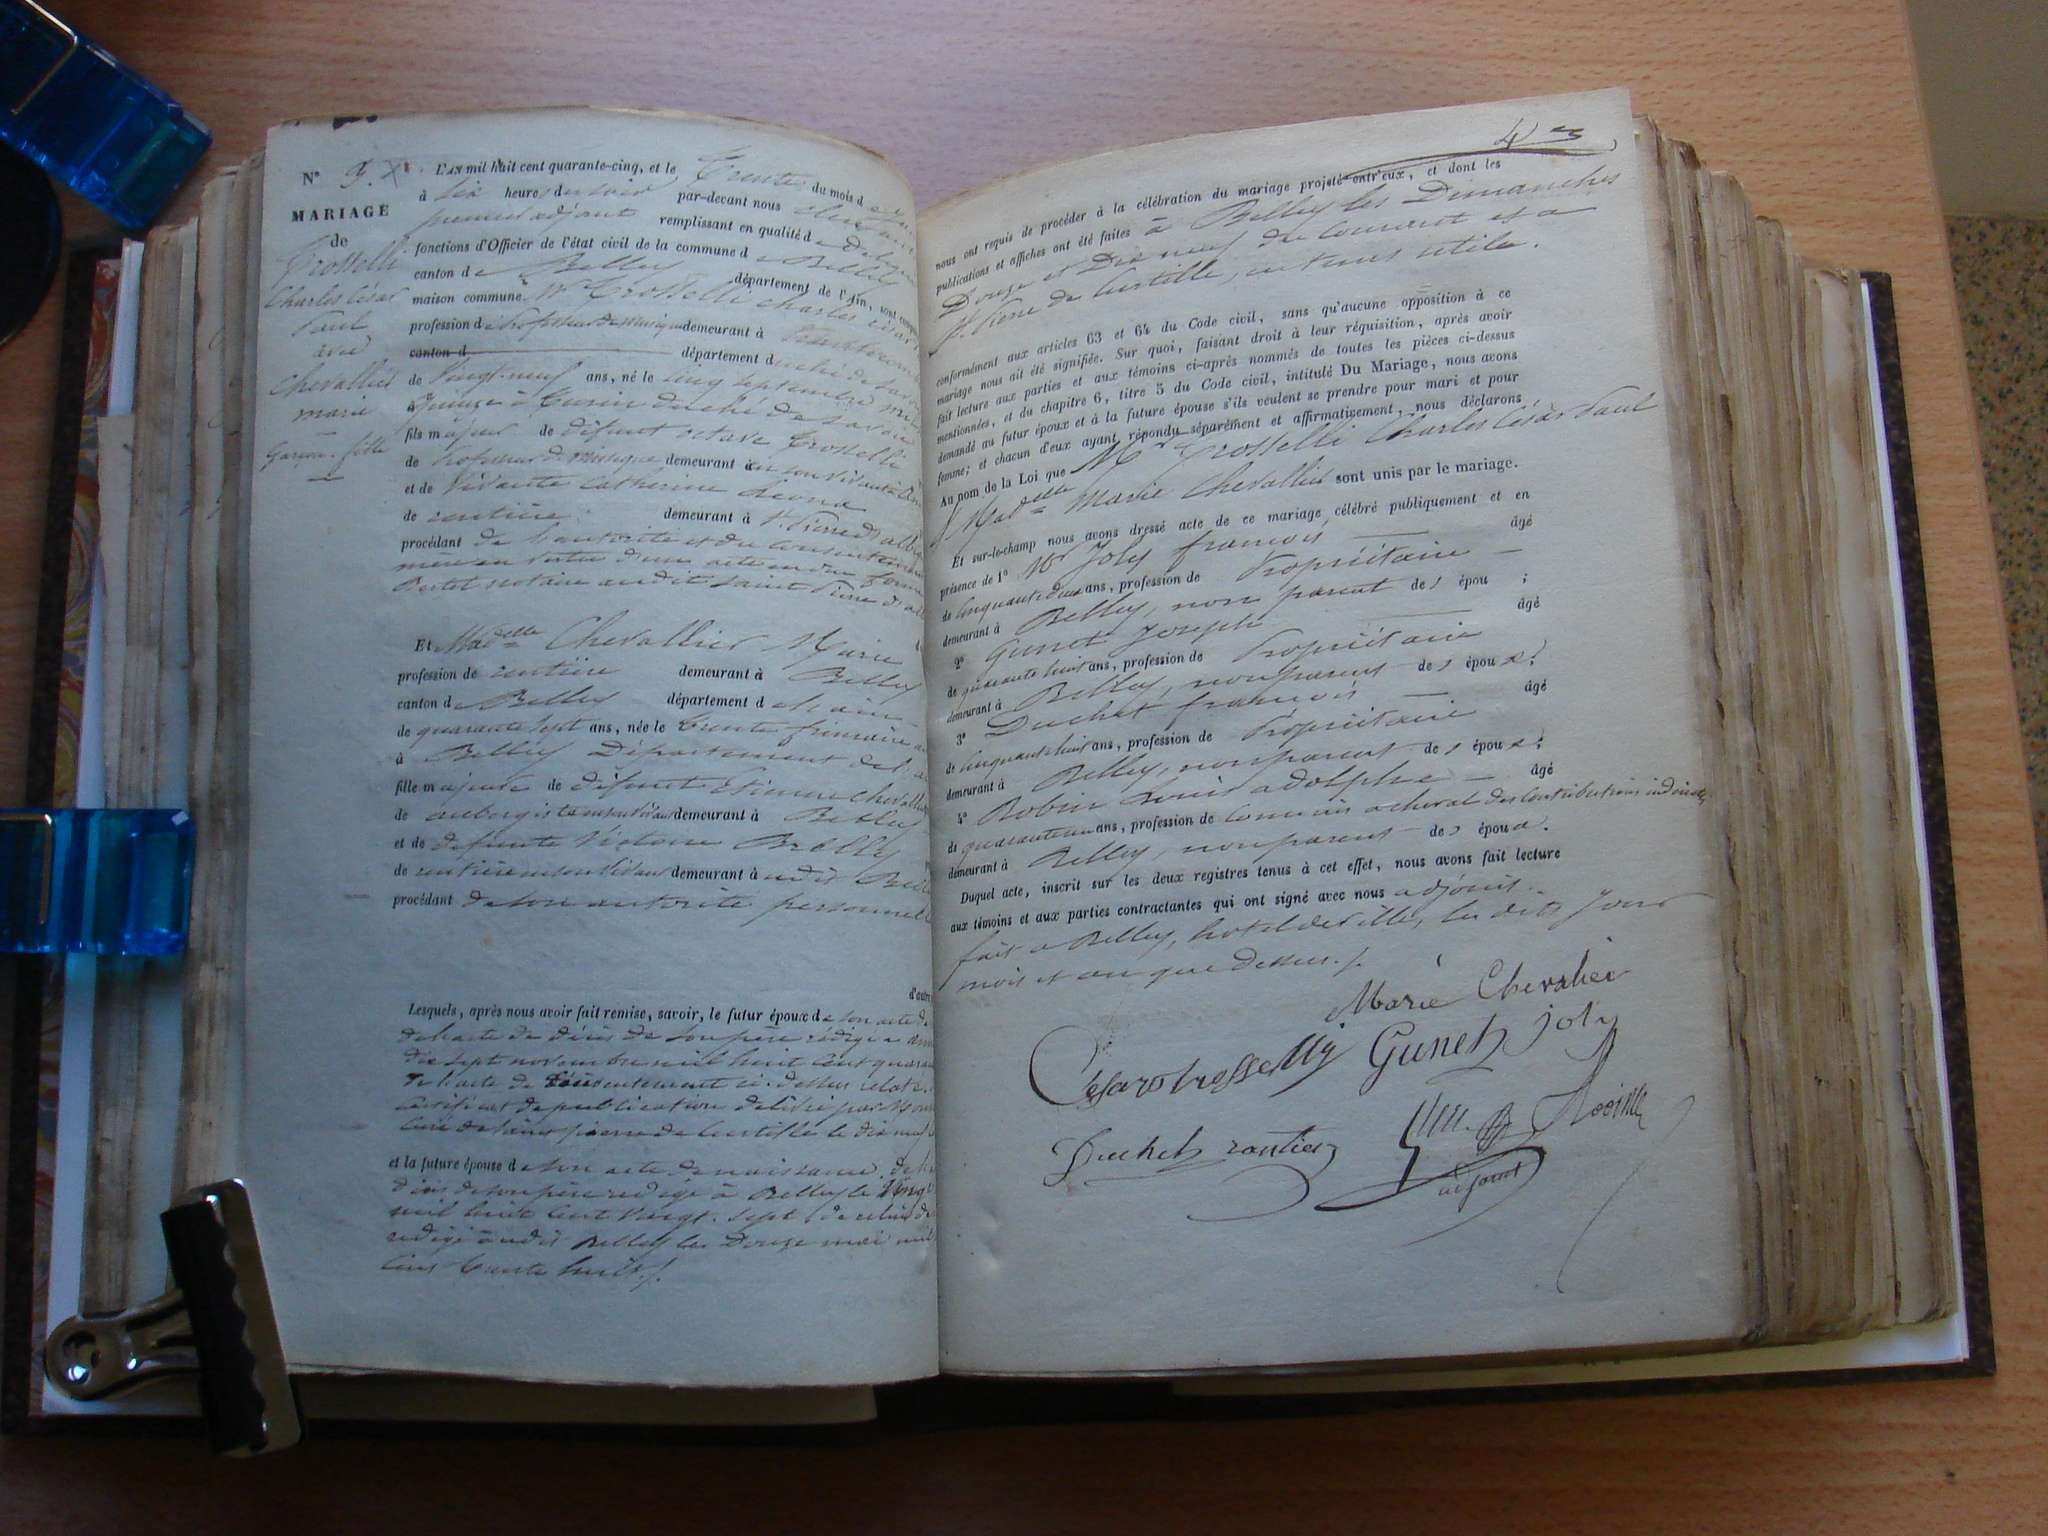 N° 9.
MARIAGE
de
Trosselli
Charles César
Paul
avec
Chevallier
marie
Garçon. fille
L'AN mil huit cent quarante-cinq, et le Trente du mois d
à six heures du soir par-devant nous
premier adjoint remplissant en qualité de
fonctions d'Officier de l'état civil de la commune de Belley
canton de Belley département de l'Ain, sont
maison commune Mr Trosselli Charles César
profession de Professeur de musique demeurant à
canton d département d duché de Savoie
de Vingt-neuf ans, né le cinq septembre mil
quinze à Turin duché de Savoie
fils majeur de défunt octave Trosselli
de professeur de musique demeurant en son vivant à
et de vivante Catherine
de rentière demeurant à St. Pierre d'alb
procédant de l'autorité et du consentement
mère en vertu d'une acte en due forme
notaire audit saint Pierre d'al
Et Madelle Chevallier Marie
profession de rentière demeurant à Belley
canton de Belley département de l'ain
de quarante sept ans, née le Trente frimaire an
à Belley Département de l'ai
fille majeure de défunt Etienne Chevallier
de aubergiste en son vivant demeurant à Belley
et de défunte Victoire Brelly
de rentière en son vivant demeurant à audit Belley
procédant de son autorité personnelle
d'autre
Lesquels, après nous avoir fait remise, savoir, le futur époux de son acte de
de l'acte de décès de son père rédigé a
dix sept novembre mil huit cent quaran
de l'acte de consentement ci-dessus relaté,
certificat de publication délivré par Mon
curé de saint pierre de Curtille le dix neuf
et la future épouse de son acte de naissance, de l'a
décès de son père rédigé à Belley le Vingt
mil huit cent vingt-sept, de celui de
rédigé audit Belley le Douze mai mil
cent trente huit./.
nous ont requis de procéder à la célébration du mariage projeté entr'eux, et dont les
publications et affiches ont été faites à Belley les Dimanches
Douze et Dix neuf du courant et a
St. Pierre de Curtille, en tems utile.
conformément aux articles 63 et 64 du Code civil, sans qu'aucune opposition à ce
mariage nous ait été signifiée. Sur quoi, faisant droit à leur réquisition, après avoir
fait lecture aux parties et aux témoins ci-après nommés de toutes les pièces ci-dessus
mentionnées, et du chapitre 6, titre 5 du Code civil, intitulé Du Mariage, nous avons
demandé au futur époux et à la future épouse s'ils veulent se prendre pour mari et pour
femme; et chacun d'eux ayant répondu séparément et affirmativement, nous déclarons
Au nom de la Loi que Mr Trosselli Charles César Paul
Madelle Marie Chevallier sont unis par le mariage.
Et sur-le-champ nous avons dressé acte de ce mariage célébré publiquement et en
présence de 1° Mr Joly françois âgé
de cinquante deux ans, profession de Propriétaire
demeurant à Belley, non parent des épou ;
2° Gunet Joseph âgé
de quarante huit ans, profession de Propriétaire
demeurant à Belley, non parent des époux;
3° Duchet françois âgé
de cinquante huit ans, profession de Propriétaire
demeurant à Belley, non parent des époux;
4° Robin Louis adolphe âgé
de quarante un ans, profession de Commis a cheval des Contributions indirectes
demeurant à Belley, non parent des époux.
Duquel acte, inscrit sur les deux registres tenus à cet effet, nous avons fait lecture
aux témoins et aux parties contractantes qui ont signé avec nous adjoint.
fait a Belley, hotel de ville, les dits jour
mois et an que dessus./.
Marie Chevalier
Cesar trosselly Gunet joly
Duchet rentier
adjoint